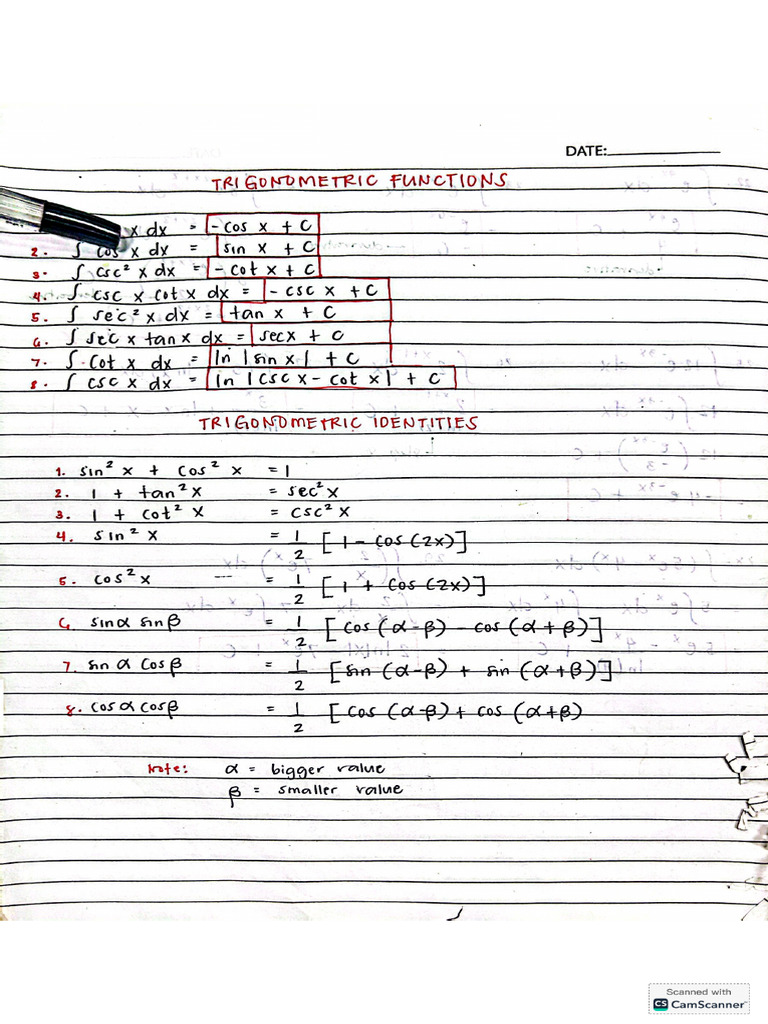 DATE:
TRIGONOMETRIC FUNCTIONS
x dx = -cos x + C
2. ∫ cos x dx = sin x + C
3. ∫ csc² x dx = -cot x + C
4. ∫ csc x cot x dx = -csc x + C
5. ∫ sec² x dx = tan x + C
6. ∫ sec x tan x dx = sec x + C
7. ∫ cot x dx = ln |sin x| + C
8. ∫ csc x dx = ln |csc x - cot x| + C
TRIGONOMETRIC IDENTITIES
1. sin² x + cos² x = 1
2. 1 + tan² x = sec² x
3. 1 + cot² x = csc² x
4. sin² x = 1/2 [1 - cos (2x)]
5. cos² x = 1/2 [1 + cos (2x)]
6. sin α sin β = 1/2 [cos (α-β) - cos (α+β)]
7. sin α cos β = 1/2 [sin (α-β) + sin (α+β)]
8. cos α cos β = 1/2 [cos (α-β) + cos (α+β)
Note: α = bigger value
β = smaller value
Scanned with
CS CamScanner